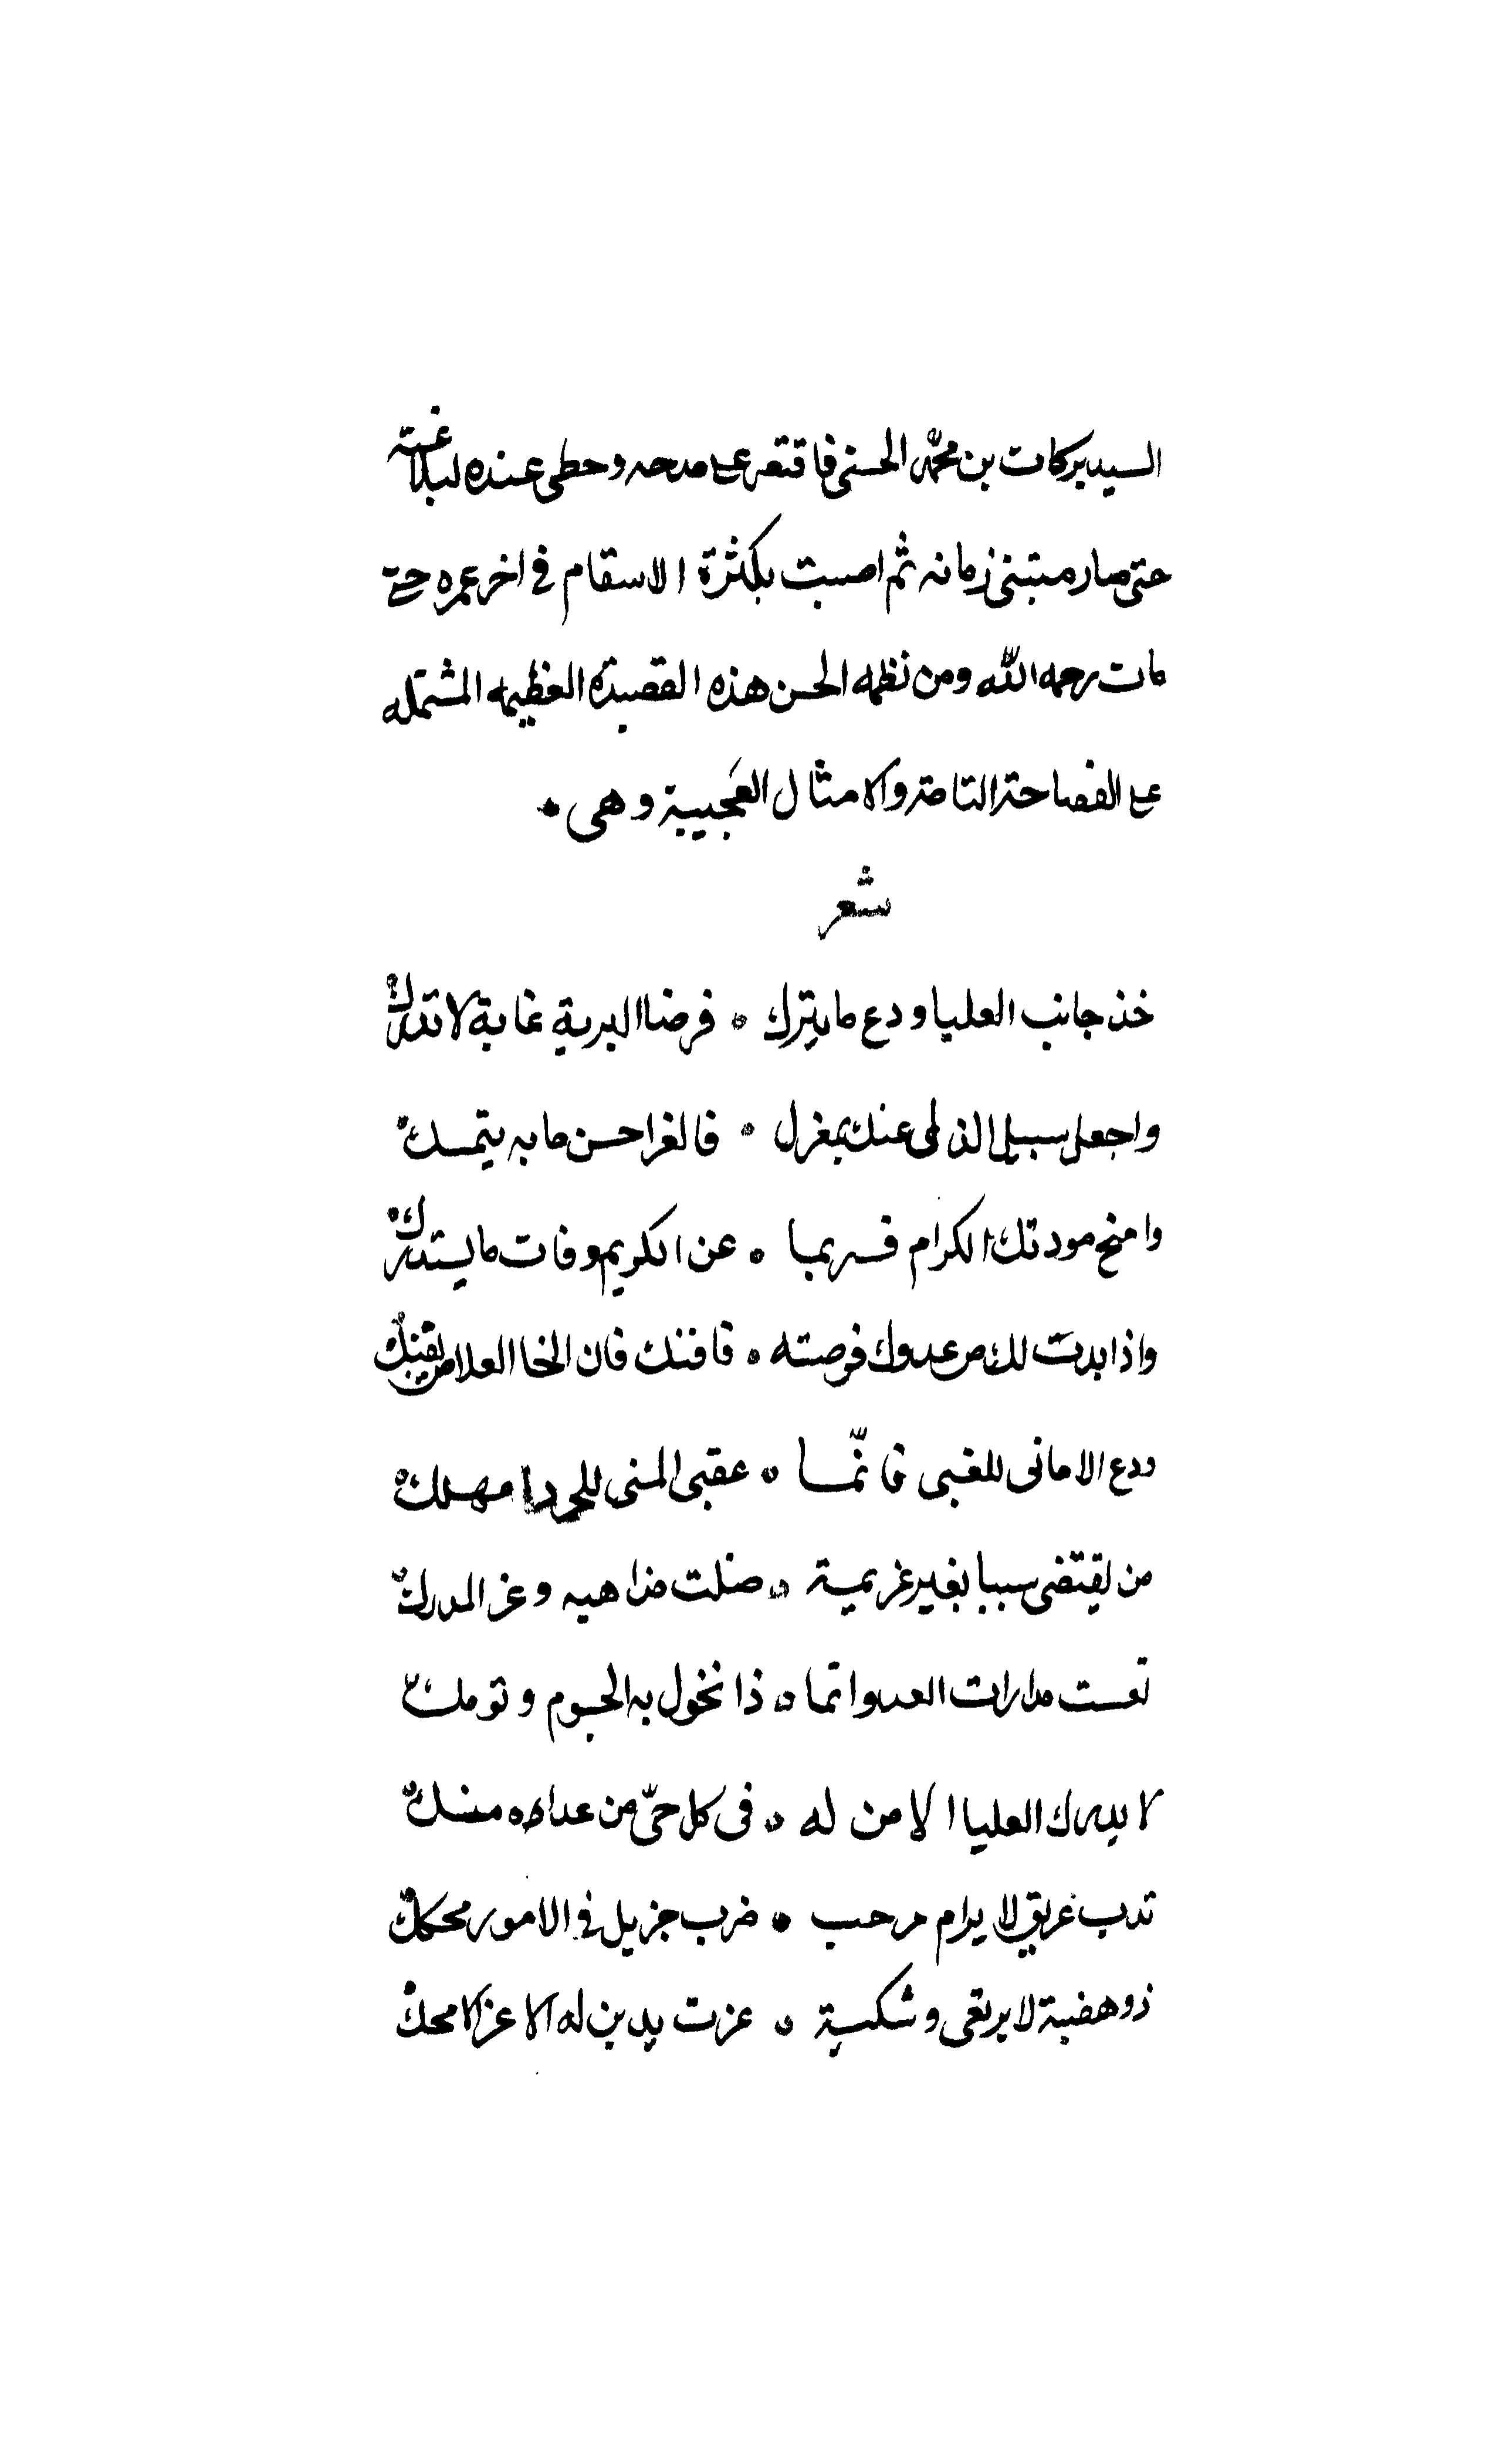 السيد بركات بن محمد الحسنى فاقتصر على مدحه وحطى عنده لبلاغته
حتى صار متبنى زمانه ثم اصيب بكثرة الاسقام فى اخر عمره حتى
مات رحمه الله ومن نظمه الحسن هذه القصيدة العظيمه المشتمله
على الفصاحة التامة والامثال العجيبة وهى •
شعر
خذ جانب العليا ودع ما يترك • فرضا البرية غاية لا تدرك
واجعل سبيل الذل عنك بمغزل • فالغراحسن ما به يتمسك
وامنح مودتك الكرام فربما • عن الكريم وفات ما يستدرك
واذا بدت لك من عدوك فرصته • فافتك فان اخا العلا من يفتك
ودع الامانى للغبى فانّما • عقبى المنى للحر دا مهلك
من يقتضى سببا بغير عزيمة • ضلت مذاهبه وعز المدرك
تعست مدارات العدو انما • ذا تحول به الجسوم وتومك
لا يدرك العليا الا من له • فى كل حىّ من عداه منسك
ندب غريق لا يرام مرحب • ضرب جزيل فى الامور محكك
ذو هضبة لا يرتقى وشكيبة • عزت يدين له الاعز الامحك